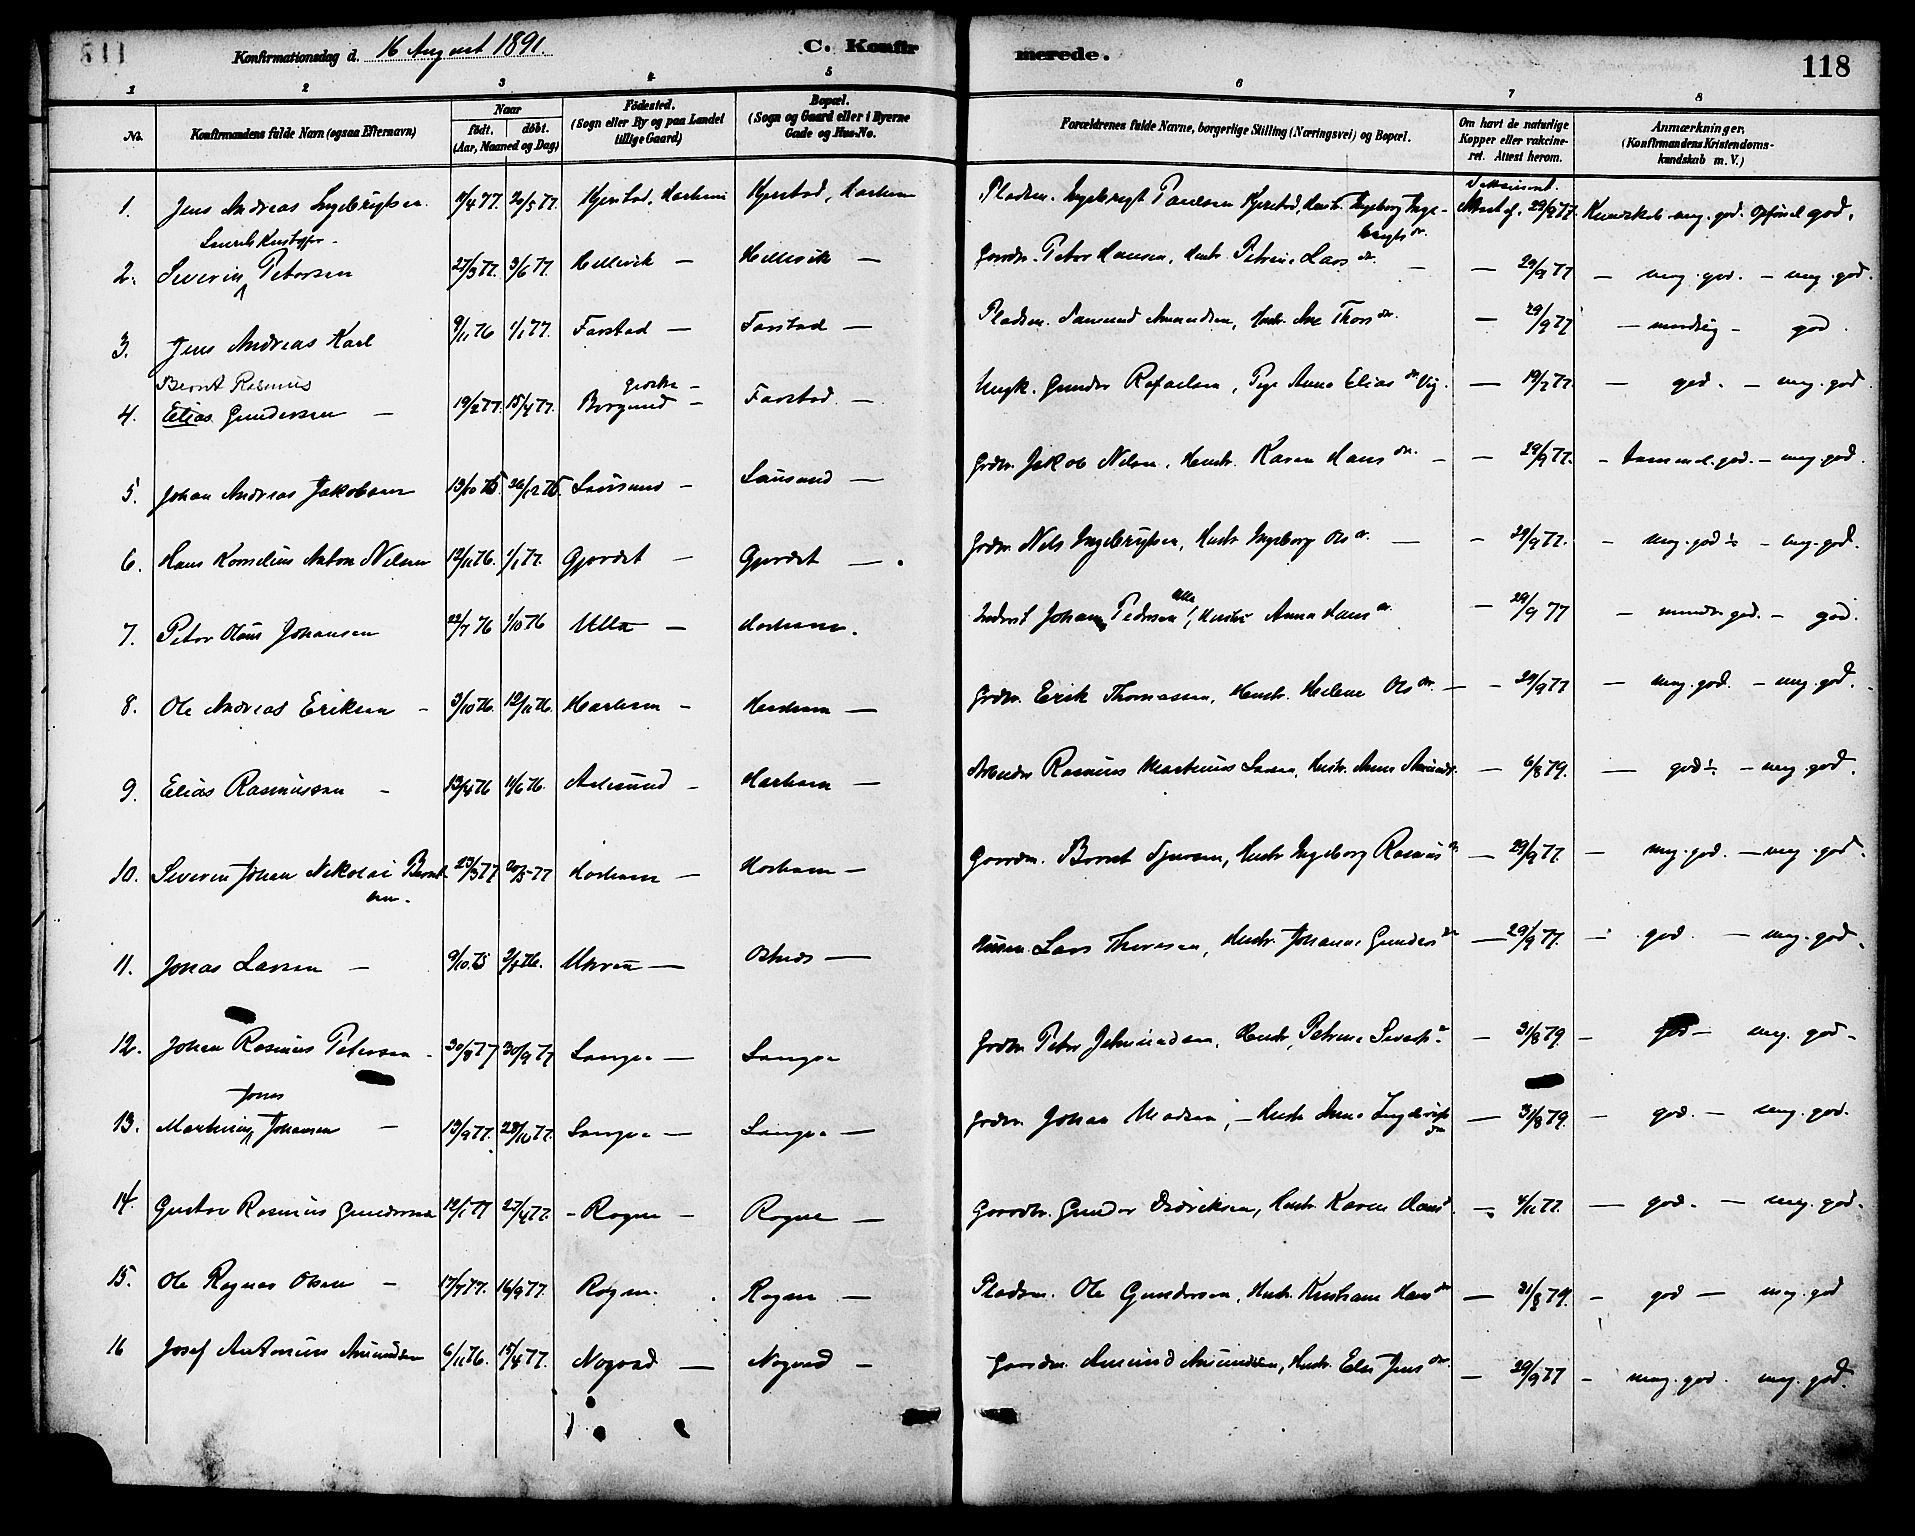 Konfirmationsdag d. 16 August 1891. C. Konfir merede. 118
1 2 3 4 5 6 7 8
No. Konfirmandens fulde Navn (ogsaa Efternavn) Naar født. døbt. (Aar, Maaned og Dag) Fødested. (Sogn eller By og paa Landet tillige Gaard) Bopæl. (Sogn og Gaard eller i Byerne Gade og Hus-No. Forældrenes fulde Navne, borgerlige Stilling (Næringsvei) og Bopæl. Om havt de naturlige Kopper eller vakcineret. Attest herom. Anmærkninger. (Konfirmandens Kristendomskundskab m. V.)
1. Jens Andreas Ingebrigtsen 20/5 77. Kjerstad, Harham Kjerstad, Harham Pladsm. Ingebrigt Paulsen Kjerstad, Hustr. Ingeborg Ingebrigts dr. 29/9 77. Kundskab meg. god. Opførsel god.
2. Severin Petersen 27/3 77. 3/6 77. Hellevik — Hellevik — Gaardm. Peter Hansen, Hustr. Petrine Lars dr. — 29/9 77 — meg. god. — meg. god.
3. Jens Andreas Karl 9/11 76 1/1 77. Farstad — Farstad — Pladsm. Amundsen, Hustr. Ane Thors dr. — 29/9 77 — god.
Bernt Rasmus
4. Elias Gundersen — 19/2 77. 15/4 77. Borgund — Farstad — Ungk. Gunder Rafaelsen, Pige Anna Elias dr Vig. — 19/7 77. — god. — meg. god.
5. Johan Andreas Jakobsen 13/10 76. 26/12 76. Lausund — Lausund — Grdm. Jakob Nilsen, Hustr. Karen Hans dr. — 29/9 77. — god. — meg. god.
6. Hans Kornelius Anton Nilsen 12/11 76. 1/1 77. Gjærdet — Gjærdet — Grdm. Nils Ingebrigtsen, Hustr. Ingeborg Ols dr. — 29/9 77. — meg. god — meg. god.
7. Peter Olaus Johansen 22/7 76 1/10 76 Ulla — Harham. Inderst Johan Pedersen Ulla, Hustru Anna Hans dr. — 29/9 77 — god. — god.
8. Ole Andreas Eriksen — 3/10 76. 12/11 76. Harham — Harham — Grdm. Erik Thomassen, Hustr. Helene Ols dr. — 29/9 77 — meg. god. — meg. god.
9. Elias Rasmussen — 13/4 76 1/6 76. Aalesund — Harham — Rasmus Martinus Larsen, Hustr. Anne — 6/8 79. — god — meg. god.
10. Severin Johan Nikolai Berntsen. 23/3 77 20/5 77 Harham — Harham — Gaardm. Bernt Sjursen, Hustr. Ingeborg Rasmus dr — 29/9 77. — meg. god. — meg. god.
11. Jonas Larsen — 9/10 75 Ukren — Hustr. Johanne Gunders dr — 29/9 77. — god — meg. god.
12. Johan Rasmus Petersen — 30/8 77 30/9 77 Longva — Longva Grdm. Peter Hustr. Petrine — 31/8 79. — god — meg. god.
13. Martinus Jonas Johansen — 13/9 77. 28/10 77. Longva — Longva — Grdm. Johan Madsen, — Hustr. Anne — 31/8 79. — god. — meg. god.
14. Gustav Rasmus Gundersen 12/1 77 — Rogne — Rogne — Gaardm. Gunder Didriksen, Hustr. Karen Hans dr — 4/11 77. — god. — meg. god.
15. Ole Ragnas Olsen — 17/7 77. 16/9 77. Rogne. Rogne — Pladsm. Ole Gundersen, Hustr. Hans dr — 31/8 79. — god — meg. god
16 Josef Antonius Amundsen 6/11 76. 15/4 77. Nogvad — Nogvad — Gaardm. Amund Amundsen, Hustr. Else Jens dr. — 29/9 77 — meg. god. meg. god.